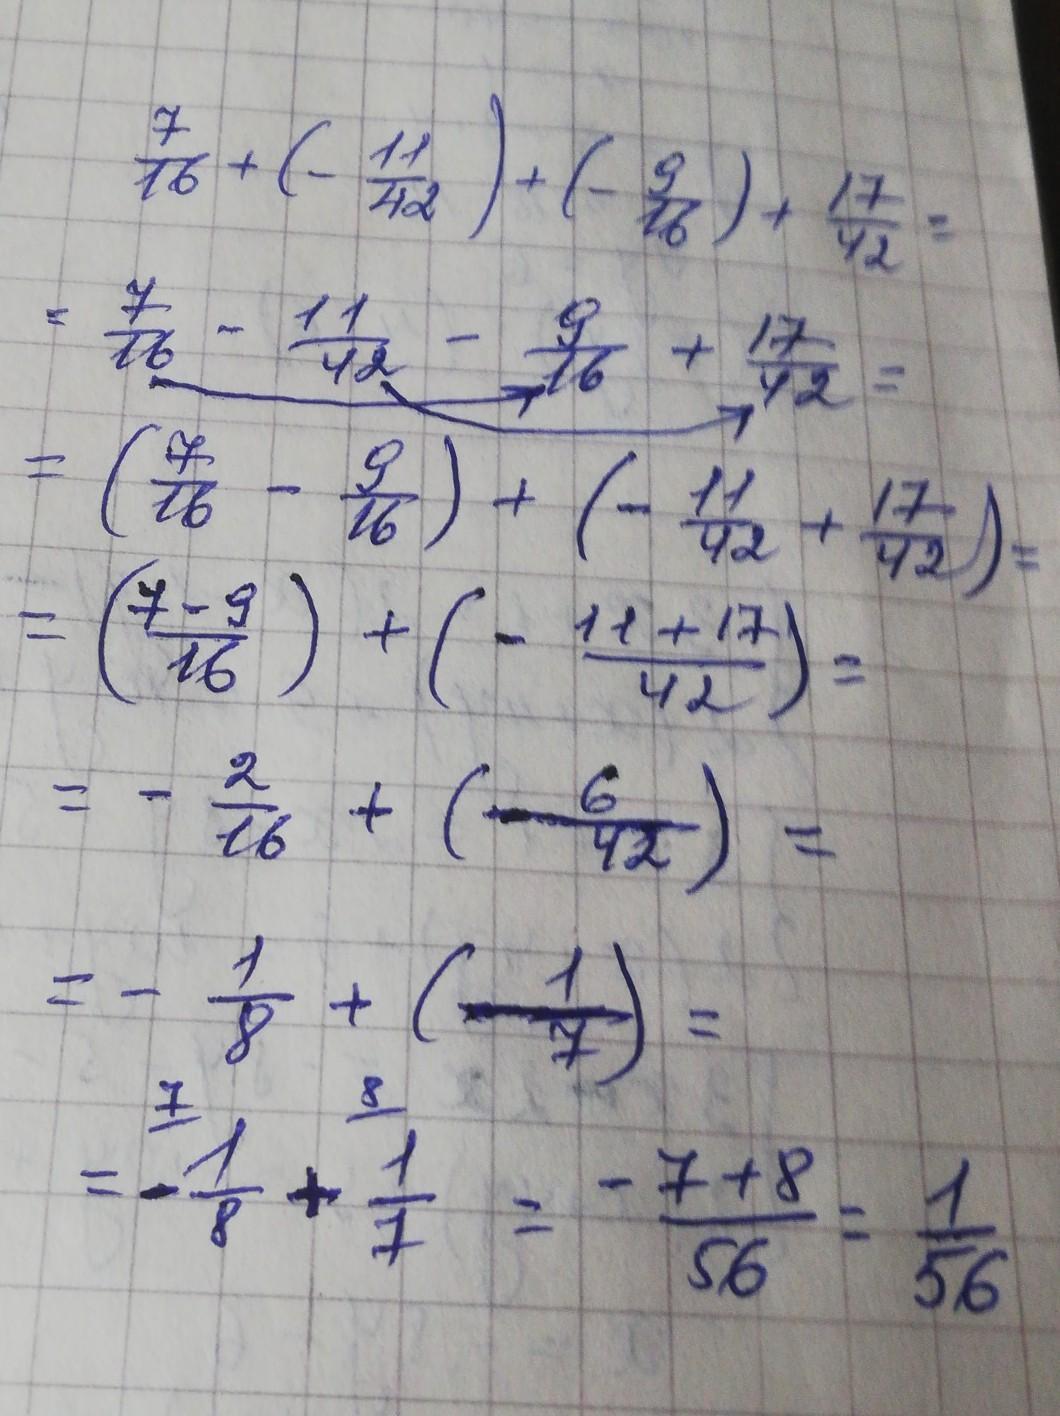 7/16 + (- 11/42) + (- 9/16) + 17/42 =
= 7/16 - 11/42 - 9/16 + 17/42 =
= (7/16 - 9/16) + (- 11/42 + 17/42) =
= (7-9/16) + (- 11+17/42) =
= - 2/16 + (- 6/42) =
= - 1/8 + (- 1/7) =
7 8
= - 1/8 + 1/7 = - 7+8/56 = 1/56